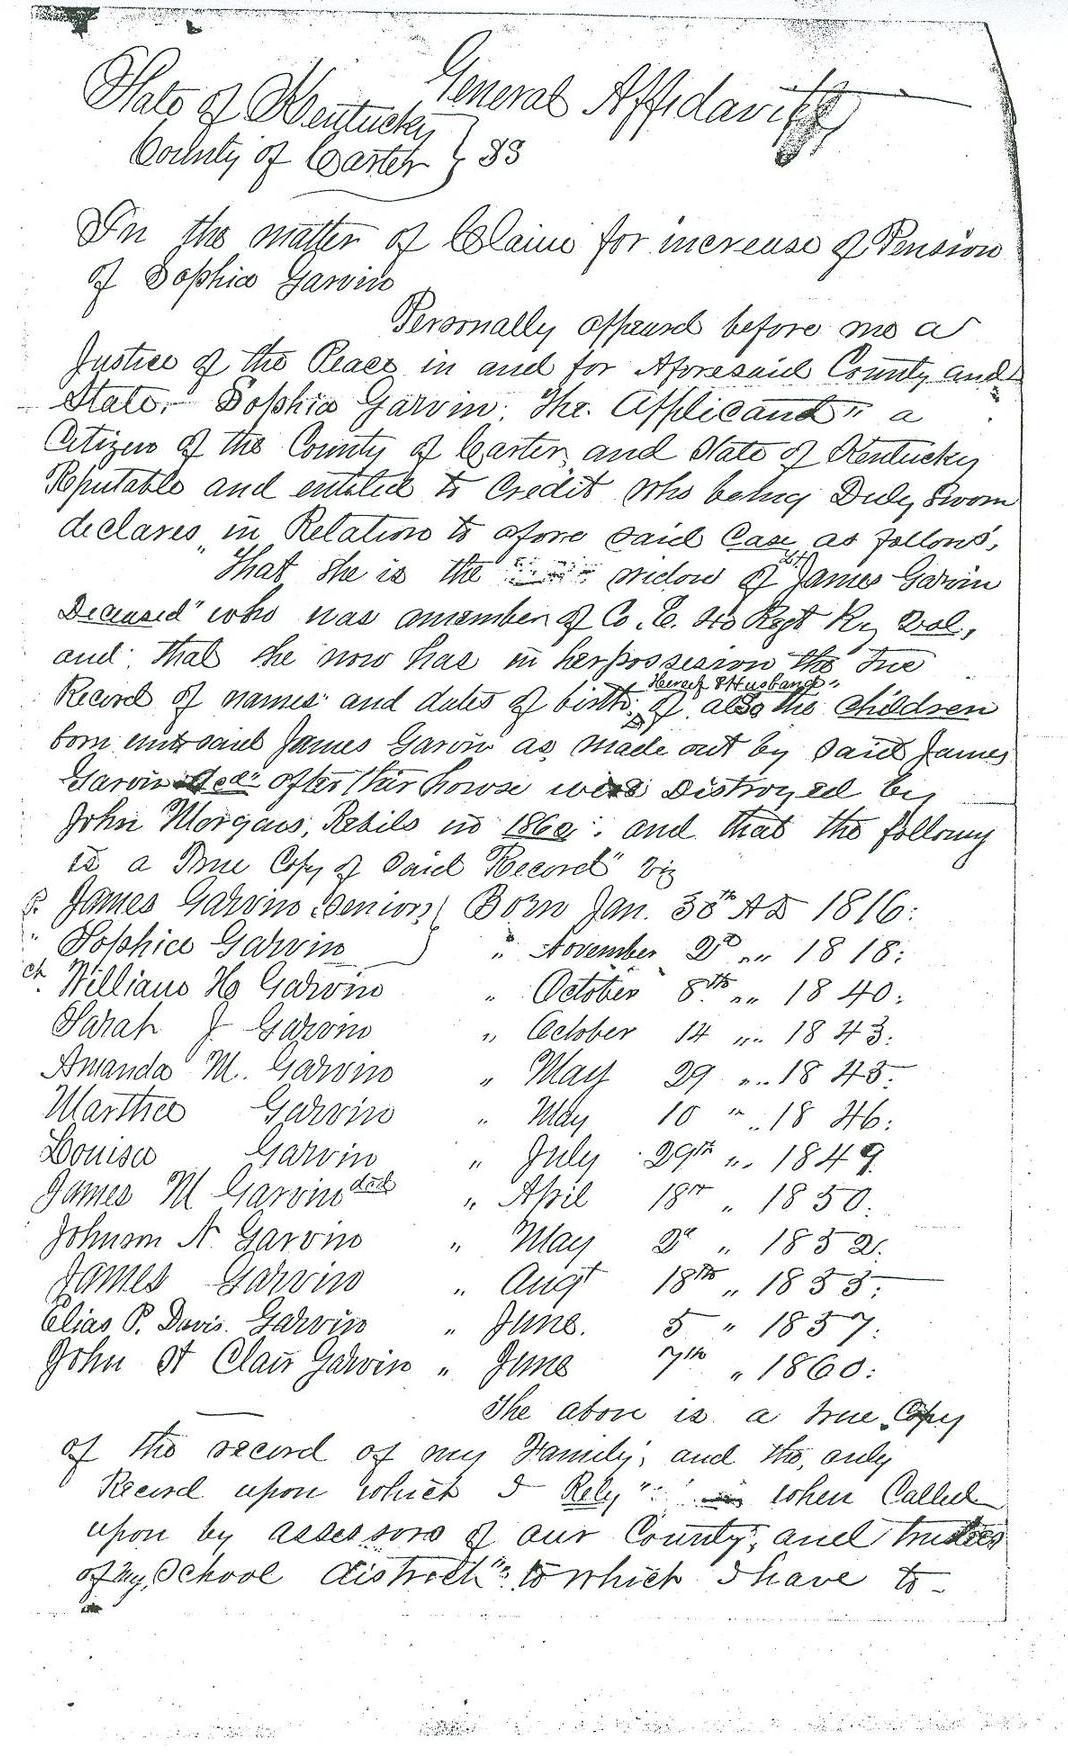 General Affidavitt
State of Kentucky
County of Carter } SS
In the matter of Claim for increase of Pension
of Sophia Garvin
Personally appeard before me a
Justice of the Peace in and for Aforesaid County and
State, Sophia Garvin; "the Applicant" a
Citizen of the County of Carter, and State of Kentucky
Reputable and entitled to Credit who being Duly Sworn
declares in Relation to afore said Case as follows,
"That she is the widow of Lt James Garvin
Deceased" who was a member of Co. E. 40 Regt Ky Vol,
and that she now has in her possession the true
Herself & Husband
Record of names and dates of birth, of also the children
born unto said James Garvin as made out by said James
Garvin decd after thir house was Distroyed by
John Morgans, Rebils in and that the followg
is a True Copy of said "Record" viz
P. James Garvin Senior } Born Jan. 30th AD 1816:
" Sophia Garvin } " November 2D " " 1818:
ch. William H Garvin " October 8th " " 1840:
Sarah J Garvin " October 14 " " 1843:
Amanda M. Garvin " May 29 " " 1845:
Martha Garvin " May 10 " " 1846:
Louisa Garvin " July 29th " " 1849
James M Garvin ded " April 18th " 1850:
Johnson N Garvin " May 2d " 1852:
James Garvin " Augt 18th " 1855:
Elias P. Davis Garvin " June. 5 " 1857:
John St Clair Garvin " June 7th " 1860:
The above is a true Copy
of the record of my Family; and the, only
Record upon which I Rely" when Called
upon by assessors of our County; and trustees
of my School district" to which I have to-